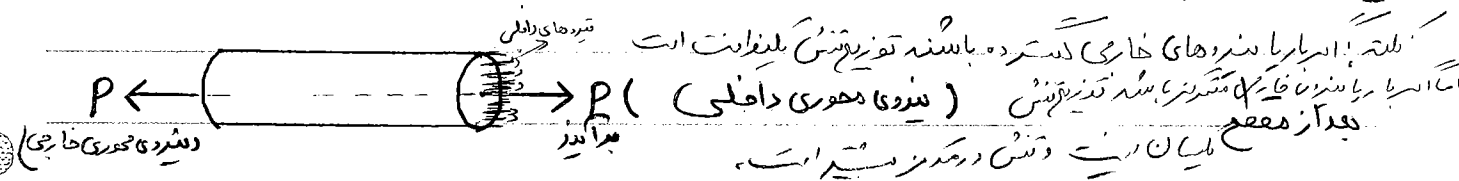 نکته: اگر بار یا نیروهای خارجی گسترده باشند توزیع تنش یکنواخت است
اما اگر بار یا نیروی خارجی متمرکز باشد توزیع تنش
یکسان نیست و تنش در مرکز بیشتر است.
نیروهای داخلی
P
P
(نیروی محوری داخلی)
برآیند
بعد از مقطع
(نیروی محوری خارجی)